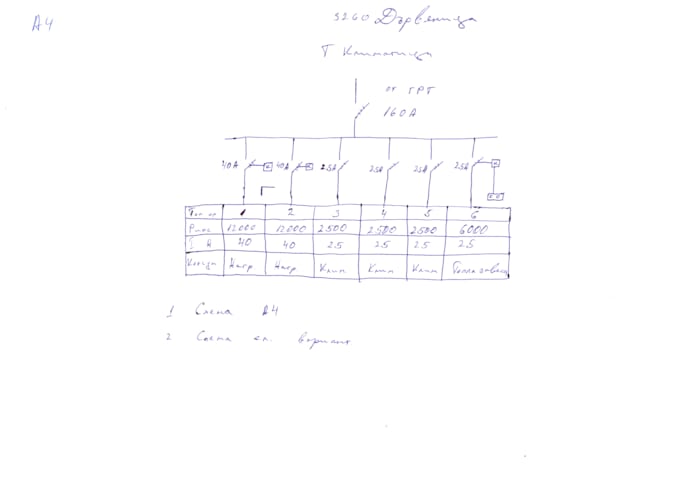 А4
3260 Дървеница
Т Климатици
от ГРТ
160А
40А 40А 25А 25А 25А 25А
Ток кр 1 2 3 4 5 6
Pинс 12000 12000 2500 2500 2500 6000
I А 40 40 25 25 25 25
Нагр Нагр Клим Клим Клим Топла завеса
1 Схема А4
2 Схема ел. вариант